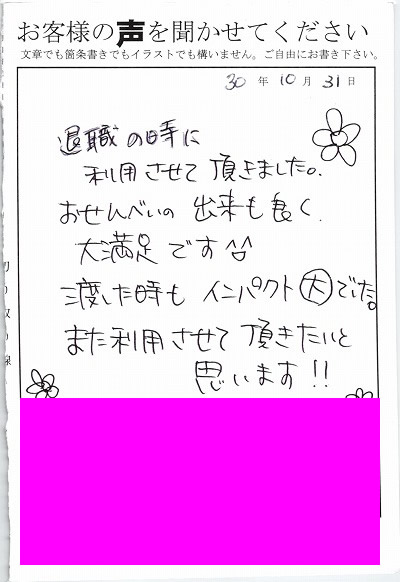 お客様の声を聞かせてください
文章でも箇条書きでもイラストでも構いません。ご自由にお書き下さい。
30年10月31日
退職の時に
利用させて頂きました。
おせんべいの出来も良く
大満足です^^
渡した時もインパクト大でした。
また利用させて頂きたいと
思います!!